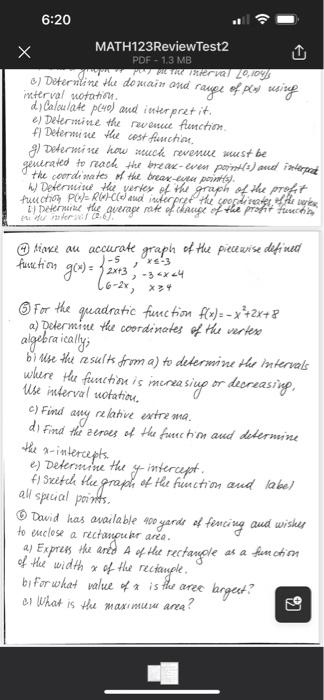 6:20
MATH123ReviewTest2
PDF - 1.3 MB
the interval [0,104]
c) Determine the domain and range of p(x) using
interval notation.
d) Calculate p(40) and interpret it.
e) Determine the revenue function.
f) Determine the cost function.
g) Determine how much revenue must be
generated to reach the break-even point(s) and interpret
the coordinates of the break-even point(s).
h) Determine the vertex of the graph of the profit
function P(x)=R(x)-C(x) and interpret the coordinates of the vertex
i) Determine the average rate of change of the profit function
on the interval
④ Make an accurate graph of the piecewise defined
function g(x) = { -5, x≤-3
2x+3, -3<x<4
6-2x, x≥4
⑤ For the quadratic function f(x)=-x²+2x+8
a) Determine the coordinates of the vertex
algebraically;
b) Use the results from a) to determine the intervals
where the function is increasing or decreasing.
Use interval notation.
c) Find any relative extrema.
d) Find the zeroes of the function and determine
the x-intercepts.
e) Determine the y-intercept.
f) Sketch the graph of the function and label
all special points.
⑥ David has available 400 yards of fencing and wishes
to enclose a rectangular area.
a) Express the area A of the rectangle as a function
of the width x of the rectangle.
b) For what value of x is the area largest?
c) What is the maximum area?